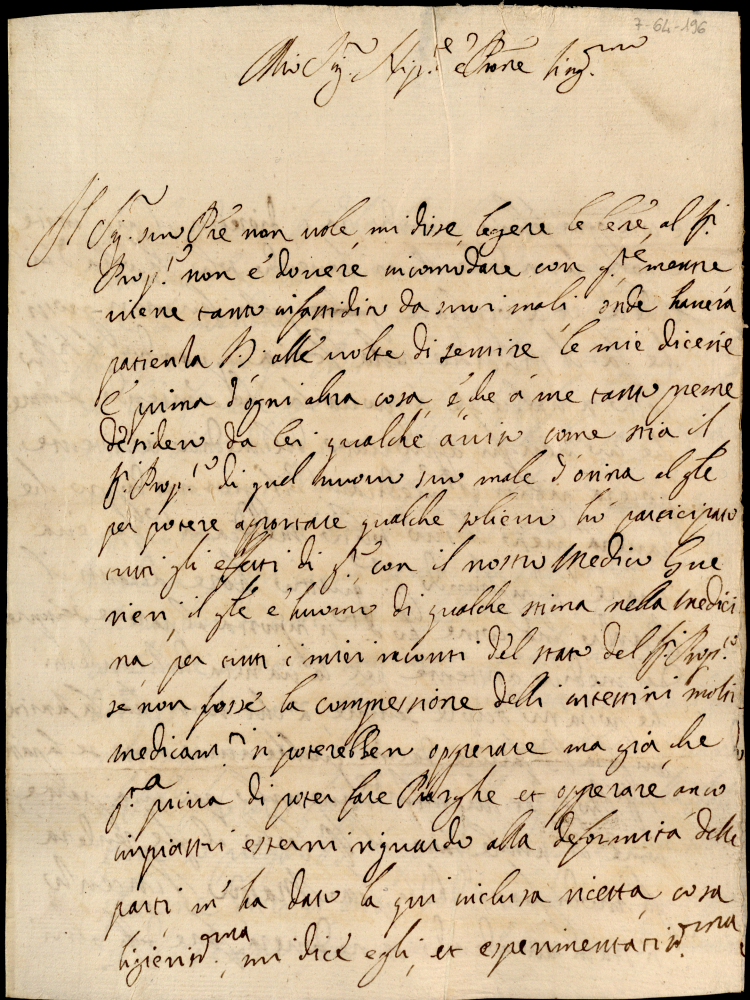 7-64-196
Mio Sig.r Nip.te e Prone sing.mo
Il Sig.r suo Pre non vole mi dise legere le lere, al S.r
Prop.to non è dovere incomodare con q.te mentre
viene tanto infastidito da suoi mali onde haverà
patienza alle volte di sentire le mie dicerie
E prima d'ogni altra cosa, è che à me tanto preme
desidero da lei qualche aviso come stia il
S.r Prop.to di quel nuovo suo male d'orina al qle
per potere apportare qualche solievo hò participato
tutti gli effetti di q.to con il nostro Medico Gue
rieri il qle è huomo di qualche stima nella medici
na, per tutti i miei raconti del stato del S.r Prop.to
se non fosse la compressione delli intestini molti
medicam.ti si poterebben opperare ma già che
q.ta priva di poter fare Purghe et opperare anco
impiastri esterni riguardo alla deformità delle
parti m' ha dato la qui inclusa ricetta cosa
ligieriss.ma, mi dice egli, et esperimentatiss.ma